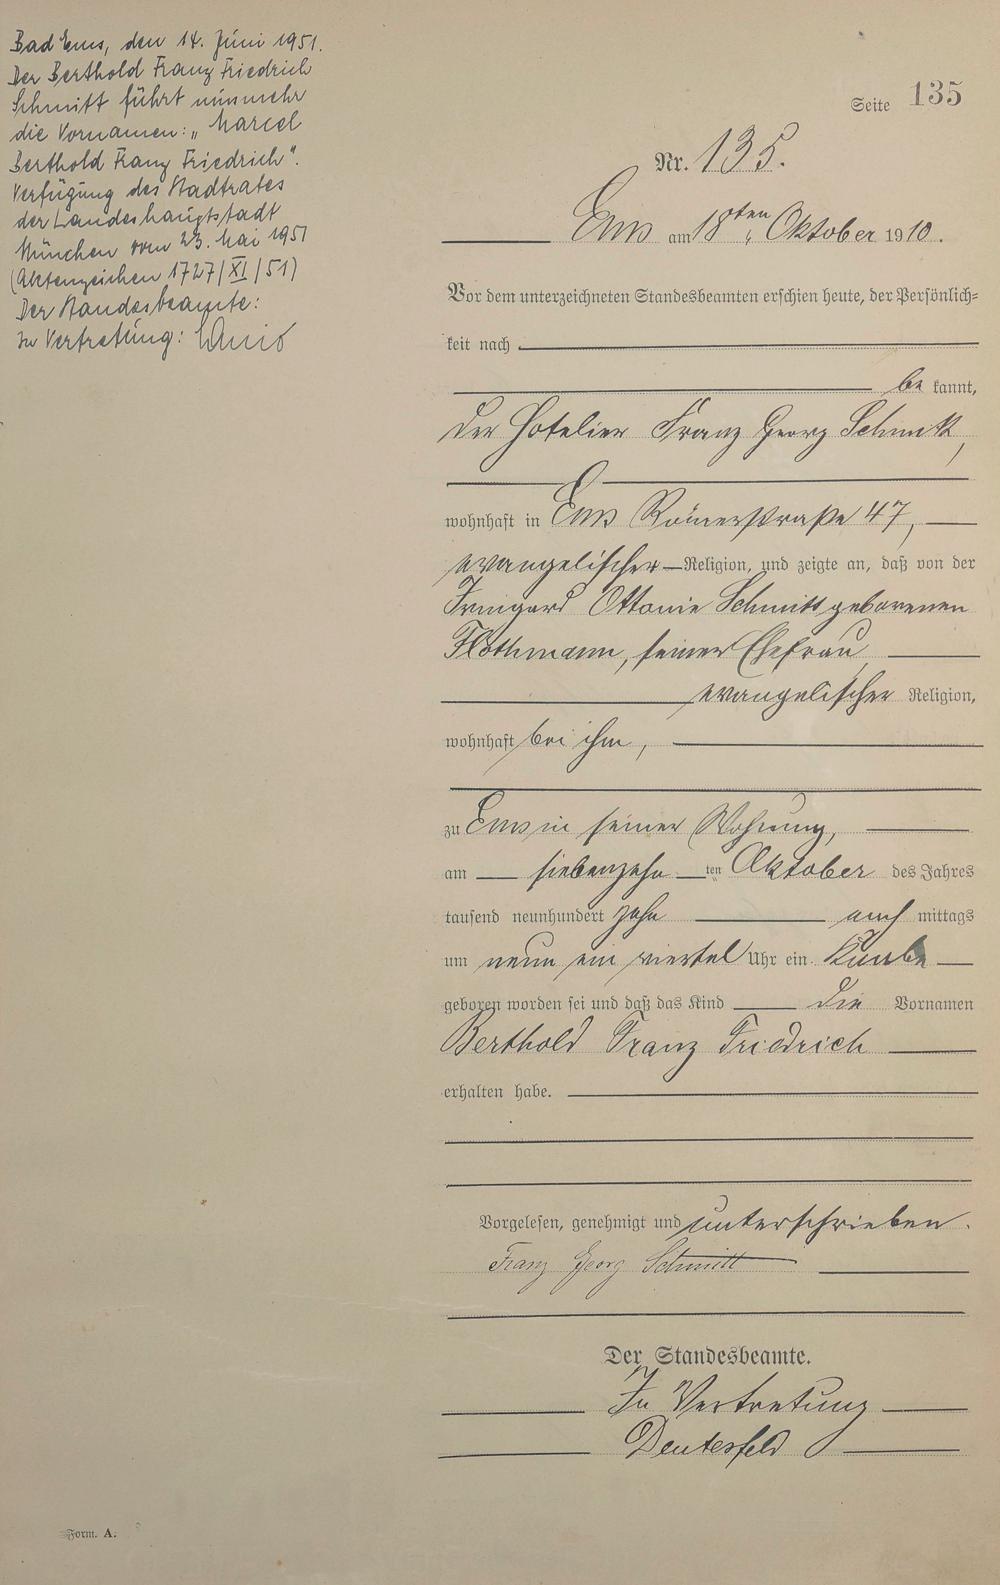 Bad Ems, den 14. Juni 1951.
Der Berthold Franz Friedrich
Schmitt führt nunmehr
die Vornamen: „Marcel
Berthold Franz Friedrich“.
Verfügung des Stadtrates
der Landeshauptstadt
München vom 23. Mai 1951
(Aktenzeichen 1727/XI/51)
Der Standesbeamte:
In Vertretung:
Seite 135
Nr. 135.
Ems am 18ten Oktober 1910.
Vor dem unterzeichneten Standesbeamten erschien heute, der Persönlich=
keit nach
be kannt,
der Hotelier Franz Georg Schmitt,
wohnhaft in Ems Römerstraße 47,
evangelischer Religion, und zeigte an, daß von der
Irmgard Ottonie Schmitt geborenen
Flothmann, seiner Ehefrau
evangelischer Religion,
wohnhaft bei ihm,
zu Ems in seiner Wohnung,
am siebenzehn ten Oktober des Jahres
tausend neunhundert zehn mittags
um neun ein viertel Uhr ein Knabe
geboren worden sei und daß das Kind die Vornamen
Berthold Franz Friedrich
erhalten habe.
Vorgelesen, genehmigt und unterschrieben.
Franz Georg Schmitt
Der Standesbeamte.
In Vertretung
Deutesfeld
Form. A.